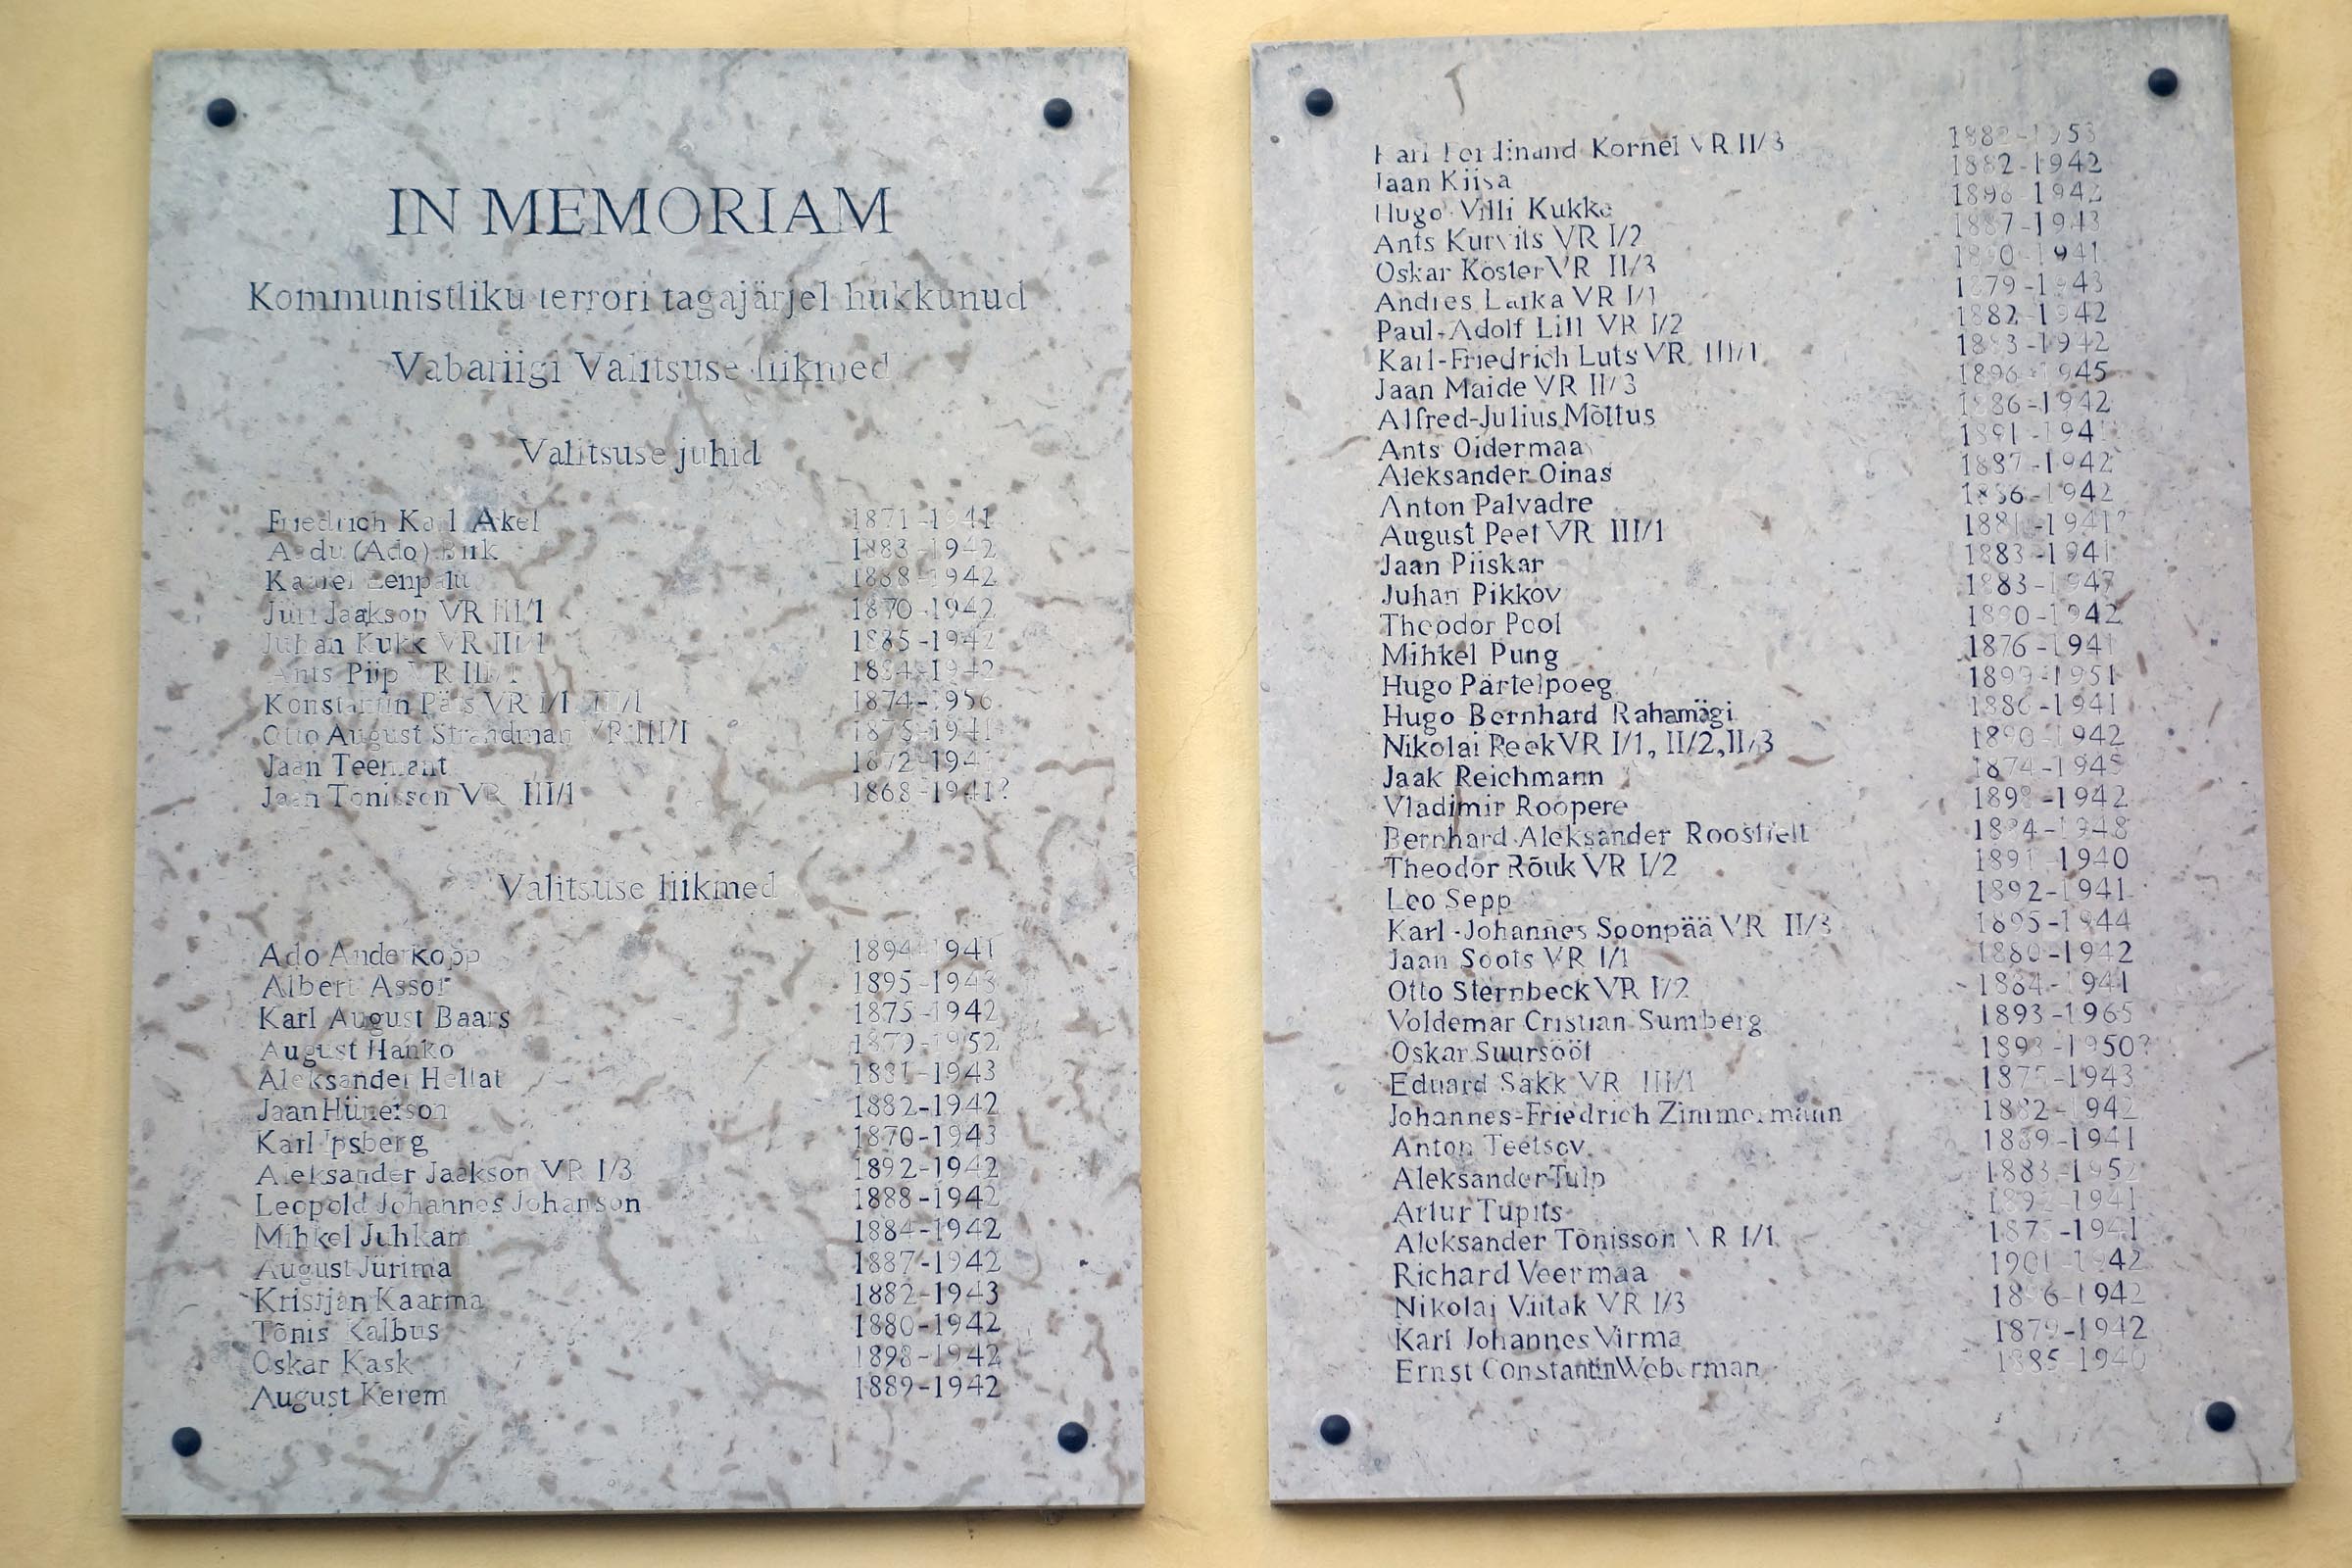 IN MEMORIAM
Kommunistliku terrori tagajärjel hukkunud
Vabariigi Valitsuse liikmed
Valitsuse juhid
Friedrich Karl Akel 1871-1941
Aadu (Ado) Birk 1883-1942
Kaarel Eenpalu 1888-1942
Jüri Jaakson VR III/1 1870-1942
Juhan Kukk VR III/1 1885-1942
Ants Piip VR III/1 1884-1942
Konstantin Päts VR I/1, III/1 1874-1956
Otto August Strandman VR III/1 1875-1941
Jaan Teemant 1872-1941
Jaan Tõnisson VR III/1 1868-1941?
Valitsuse liikmed
Ado Anderkopp 1894-1941
Albert Assor 1895-1943
Karl August Baars 1875-1942
August Hanko 1879-1952
Aleksander Hellat 1881-1943
Jaan Hünerson 1882-1942
Karl Ipsberg 1870-1943
Aleksander Jaakson VR I/3 1892-1942
Leopold Johannes Johanson 1888-1942
Mihkel Juhkam 1884-1942
August Jürima 1887-1942
Kristjan Kaarna 1882-1943
Tõnis Kalbus 1880-1942
Oskar Kask 1898-1942
August Kerem 1889-1942
Karl Ferdinand Kornel VR II/3 1882-1953
Jaan Kiisa 1882-1942
Hugo Villi Kukke 1898-1942
Ants Kurvits VR I/2 1887-1943
Oskar Köster VR II/3 1890-1941
Andres Larka VR I/1 1879-1943
Paul-Adolf Lill VR I/2 1882-1942
Karl-Friedrich Luts VR III/1 1883-1942
Jaan Maide VR II/3 1896-1945
Alfred-Julius Mõttus 1886-1942
Ants Oidermaa 1891-1941
Aleksander Oinas 1887-1942
Anton Palvadre 1886-1942
August Peet VR III/1 1881-1941?
Jaan Piiskar 1883-1941
Juhan Pikkov 1883-1947
Theodor Pool 1890-1942
Mihkel Pung 1876-1941
Hugo Pärtelpoeg 1899-1951
Hugo Bernhard Rahamägi 1886-1941
Nikolai Reek VR I/1, II/2, II/3 1890-1942
Jaak Reichmann 1874-1945
Vladimir Roopere 1898-1942
Bernhard Aleksander Roostfelt 1884-1948
Theodor Rõuk VR I/2 1891-1940
Leo Sepp 1892-1941
Karl-Johannes Soonpää VR II/3 1895-1944
Jaan Soots VR I/1 1880-1942
Otto Sternbeck VR I/2 1884-1941
Voldemar Cristian Sumberg 1893-1965
Oskar Suursööt 1893-1950?
Eduard Säkk VR III/1 1875-1943
Johannes-Friedrich Zimmermann 1882-1942
Anton Teetsov 1889-1941
Aleksander Tulp 1883-1952
Artur Tupits 1892-1941
Aleksander Tõnisson VR I/1 1875-1941
Richard Veermaa 1901-1942
Nikolai Viitak VR I/3 1896-1942
Karl Johannes Virma 1879-1942
Ernst Constantin Weberman 1885-1940